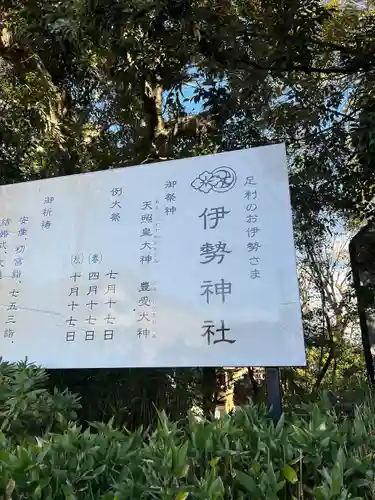 足利のお伊勢さま
伊勢神社
御祭神
天照皇大神 豊受大神
例大祭
七月十七日
(春) 四月十七日
(秋) 十月十七日
御祈祷
安産、初宮、七五三詣、